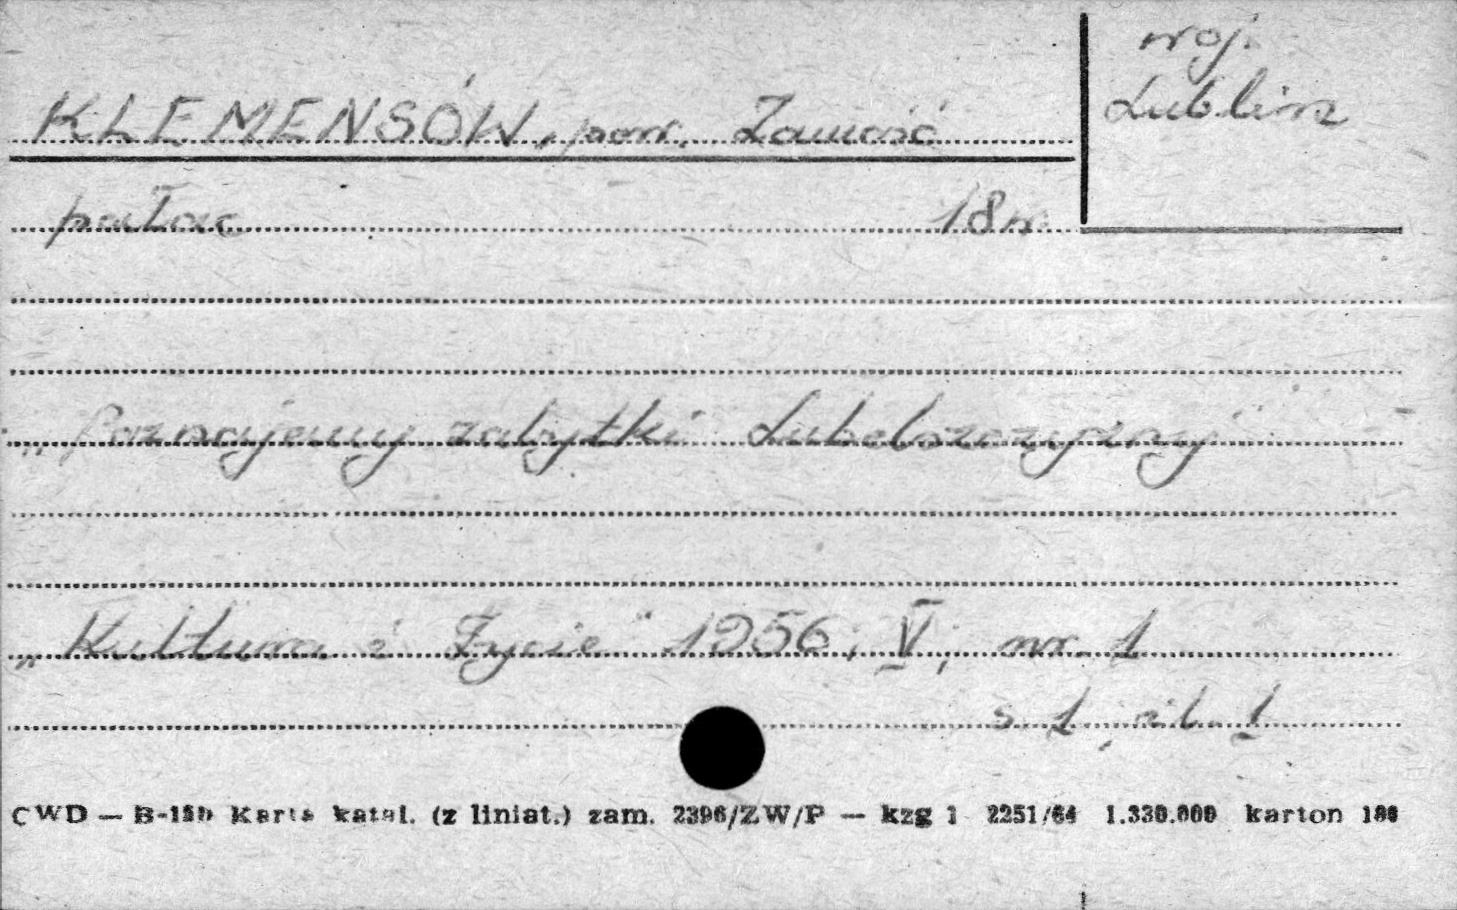 woj.
Lublin
KLEMENSÓW, pow. Zamość
pałac 18w.
„Poznajemy zabytki Lubelszczyzny"
„Kultura i Życie" 1956, V, nr. 1
s. 1, il. 1
CWD — B-15b Karta katal. (z liniat.) zam. 2396/ZW/P — kzg 1 2251/64 1.330.000 karton